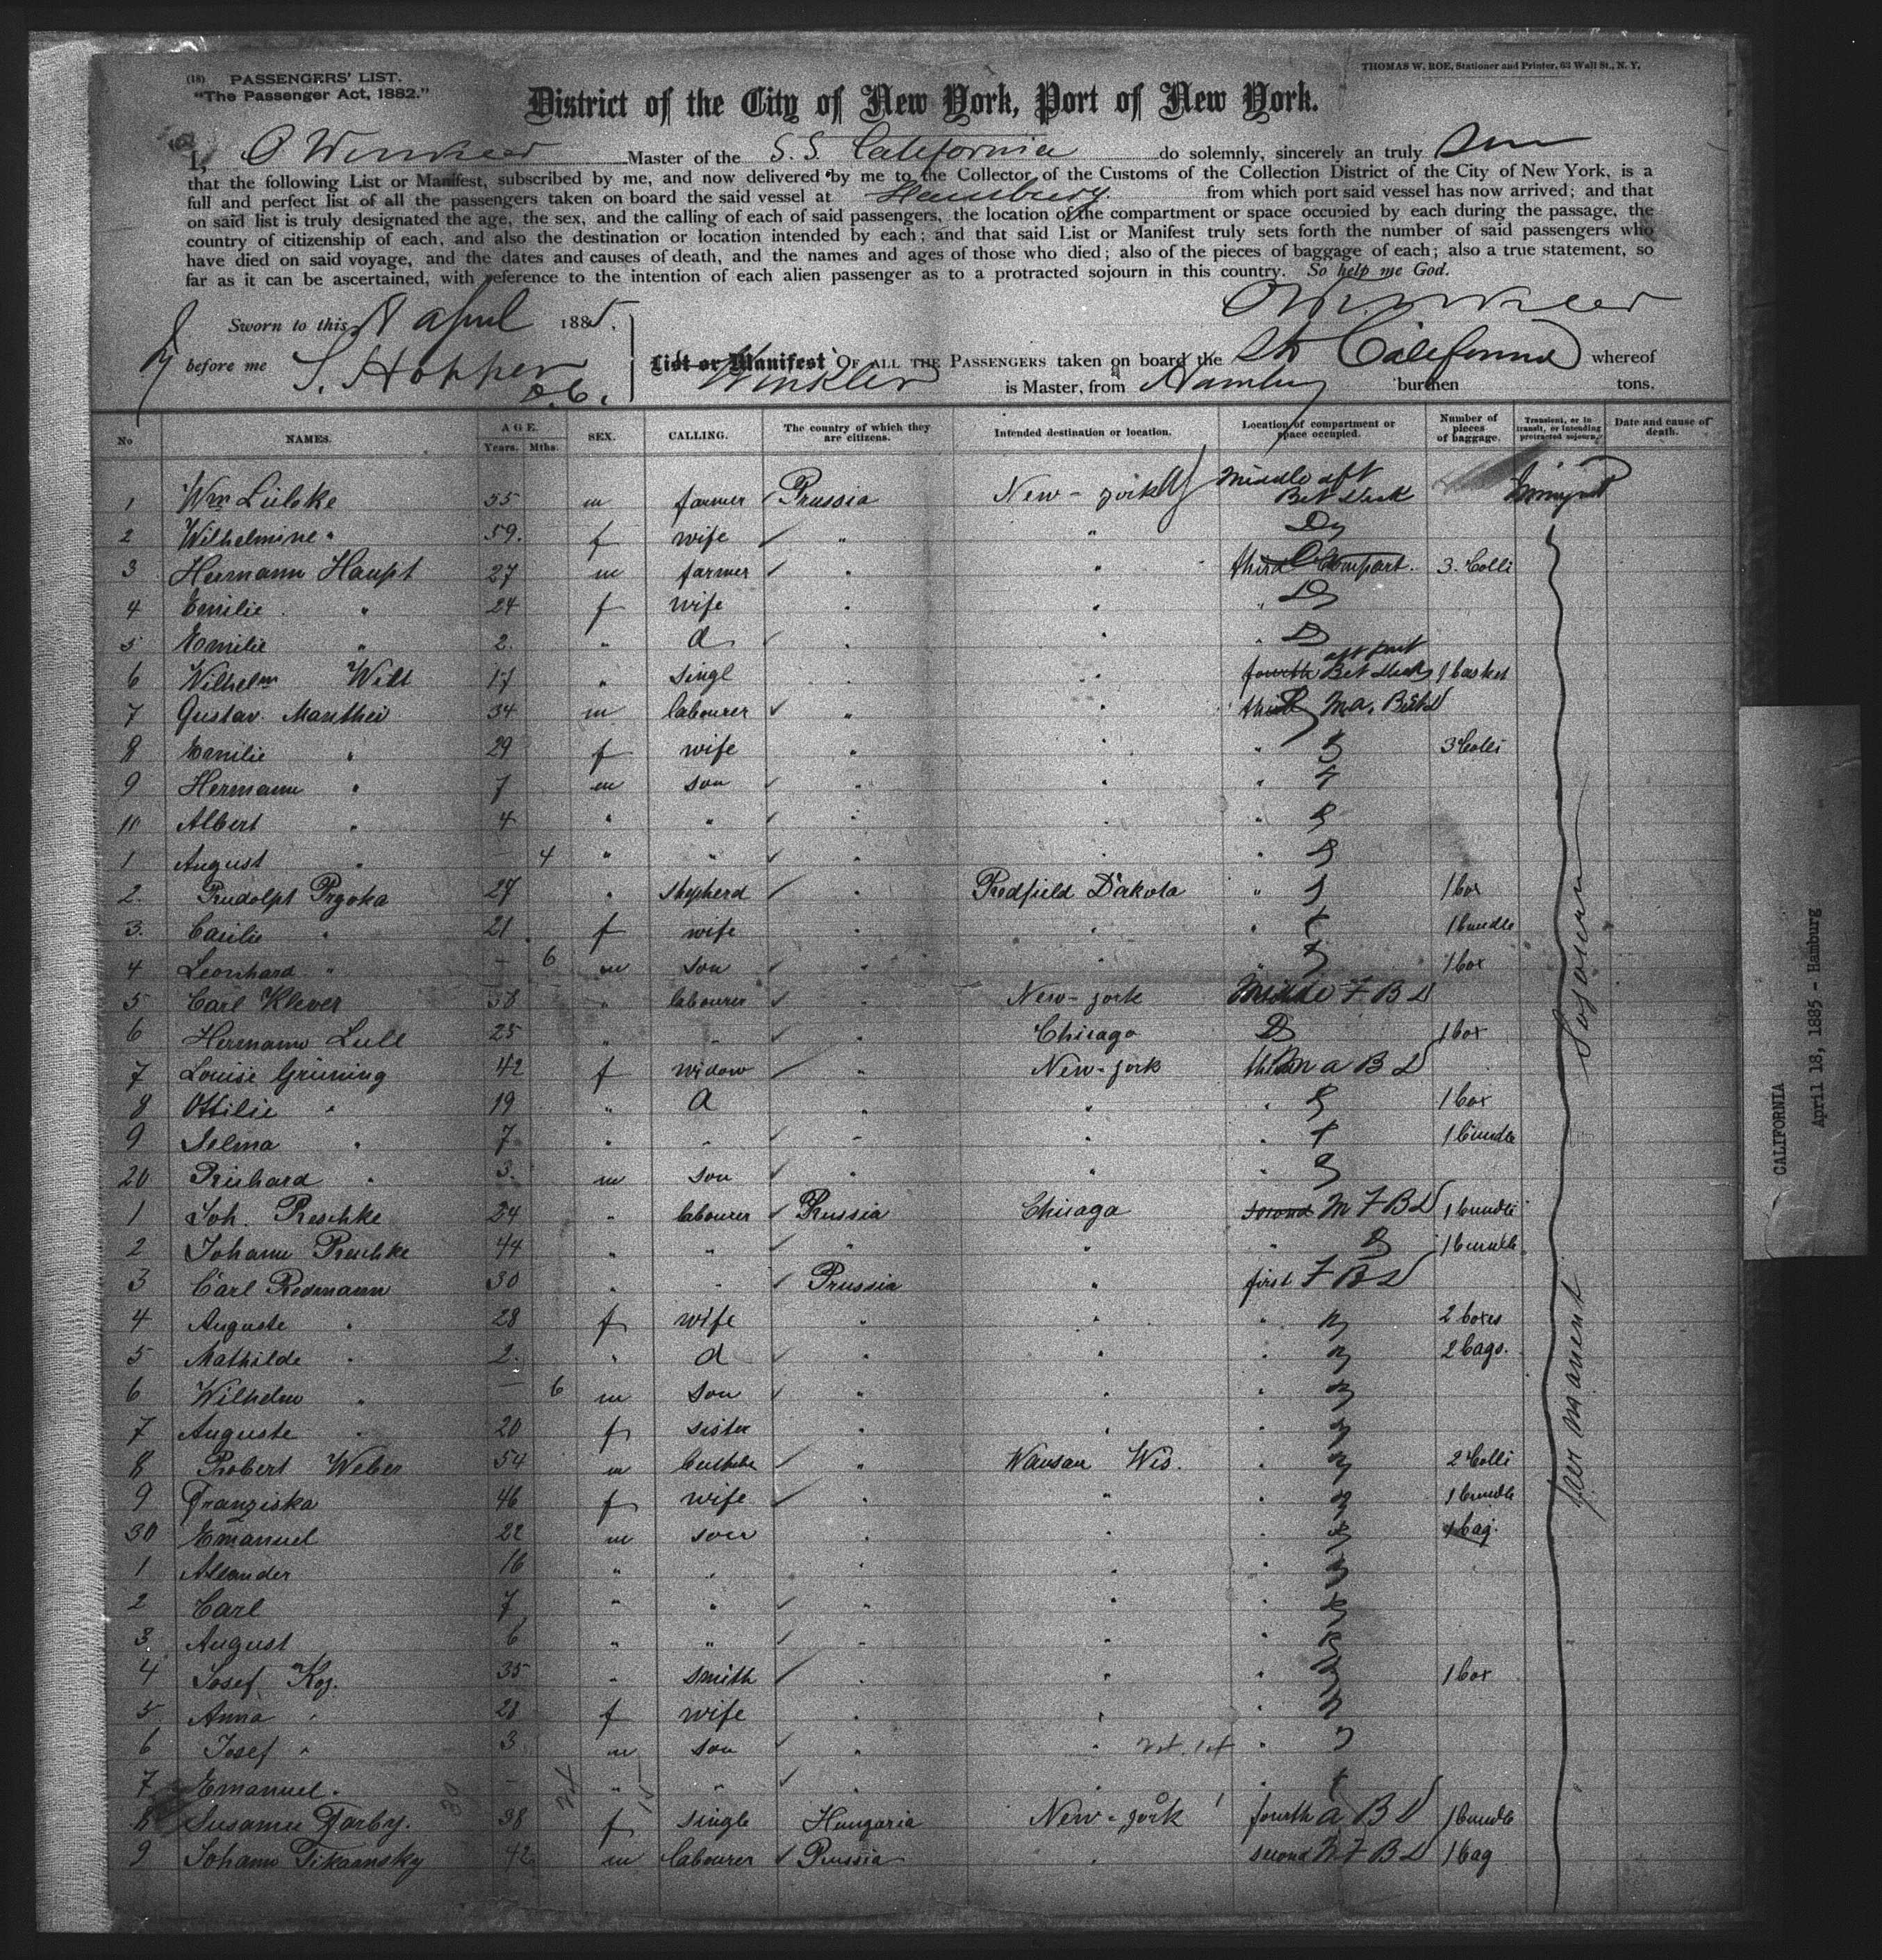 (18) PASSENGERS' LIST.
"The Passenger Act, 1882."
THOMAS W. ROE, Stationer and Printer, 63 Wall St., N. Y.
District of the City of New York, Port of New York.
I, O Winkler Master of the S. S. California do solemnly, sincerely an truly
that the following List or Manifest, subscribed by me, and now delivered by me to the Collector of the Customs of the Collection District of the City of New York, is a
full and perfect list of all the passengers taken on board the said vessel at Hamburg from which port said vessel has now arrived; and that
on said list is truly designated the age, the sex, and the calling of each of said passengers, the location of the compartment or space occupied by each during the passage, the
country of citizenship of each, and also the destination or location intended by each; and that said List or Manifest truly sets forth the number of said passengers who
have died on said voyage, and the dates and causes of death, and the names and ages of those who died; also of the pieces of baggage of each; also a true statement, so
far as it can be ascertained, with reference to the intention of each alien passenger as to a protracted sojourn in this country. So help me God.
O Winkler
Sworn to this April 1885.
before me S. Hopper D.C.
List or Manifest OF ALL THE PASSENGERS taken on board the California whereof
Winkler is Master, from Hamburg burthen tons.
No NAMES. AGE. Years. Mths. SEX. CALLING. The country of which they are citizens. Intended destination or location. Location of compartment or space occupied. Number of pieces of baggage. Transient, or in transit, or intending protracted sojourn. Date and cause of death.
1 Wm Lübke 55 m farmer Prussia New-york Middle aft Bet Deck
2 Wilhelmine " 59. f wife " "
3 Hermann Haupt 27 m farmer " " third Compart. 3. Colli
4 Emilie " 24 f wife " "
5 Emilie " 2. " d " "
6 Wilhelm Witt 17 " singl " " fourth aft part Bet Deck 1 basket
7 Gustav Manthei 34 m labourer " " third
8 Emilie " 29 f wife " " " 3 Colli
9 Hermann " 7 m son " " "
10 Albert " 4 " " " " "
1 August " - 4 " " " " "
2. Rudolph Prgoka 27 " shepherd " Redfield Dakota " 1 box
3. Cacilie " 21 f wife " " " 1 bundle
4 Leonhard " - 6 m son " " " 1 box
5 Carl Klever 38 " labourer " New-york Middle F B D
6 Hermann Lull 25 " " " Chicago 1 box
7 Louise Grüning 42 f widow " New-york third m a B D
8 Ottilie " 19 " d " " " 1 box
9 Selma " 7 " " " " " 1 bundle
20 Richard " 3. m son " " "
1 Joh. Reschke 24 " labourer Russia Chicago second M F B D 1 bundle
2 Johann Reschke 44 " " " " " 1 bundle
3 Carl Redmann 30 " " Prussia " first F B D
4 Auguste " 28 f wife " " " 2 boxes
5 Mathilde " 2. " d " " " 2 bags.
6 Wilhelm " - 6 m son " " "
7 Auguste " 20 f sister " " "
8 Robert Weber 54 m " Wausau Wis. " 2 Colli
9 Franziska 46 f wife " " " 1 bundle
30 Emanuel 22 m son " " " 1 bag.
1 Alxander 16 " " " " "
2 Carl 7 " " " " "
3 August 6 " " " " "
4 Josef Koj. 35 " smith " " " 1 box
5 Anna " 28 f wife " " "
6 Josef " 3. m son " " "
7 Emanuel " - " " " " "
8 Susanne Farby. 38 f single Hungaria New-york fourth a B D 1 bundle
9 Johann Tikaansky 42 m labourer Prussia " second M F B D 1 bag
Sojourn
permanent
CALIFORNIA
April 18, 1885 - Hamburg